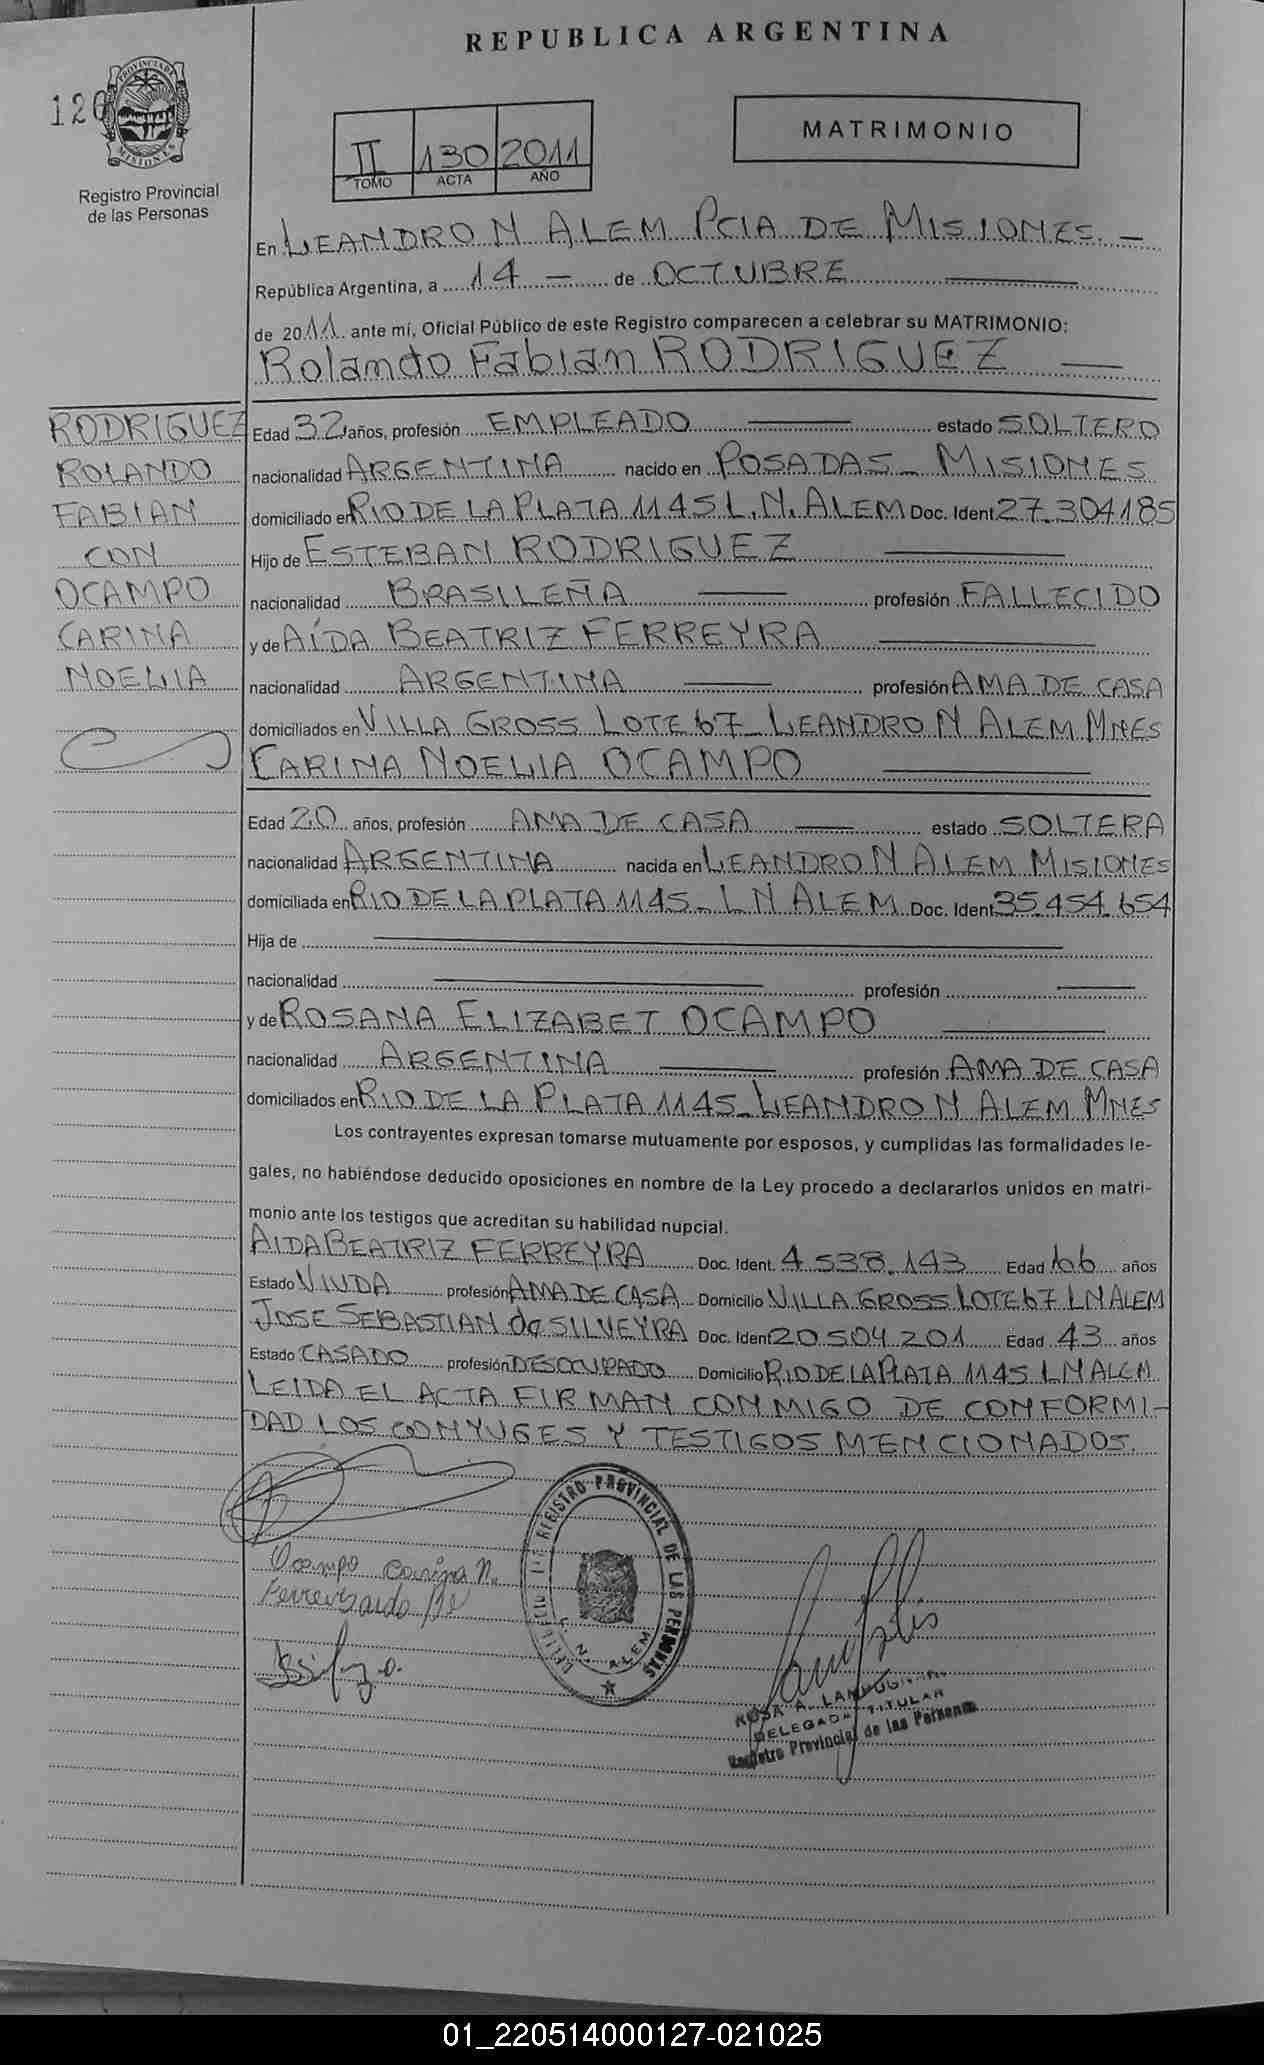 REPUBLICA ARGENTINA
PROVINCIA DE
MISIONES
Registro Provincial
de las Personas
II 130 2011
TOMO ACTA AÑO
MATRIMONIO
En LEANDRO N ALEM PCIA DE MISIONES. —
República Argentina, a 14 — de OCTUBRE
de 2011 ante mí, Oficial Público de este Registro comparecen a celebrar su MATRIMONIO:
Rolando Fabian RODRIGUEZ
RODRIGUEZ
ROLANDO
FABIAN
CON
OCAMPO
CARINA
NOELIA
Edad 32 años, profesión EMPLEADO estado SOLTERO
nacionalidad ARGENTINA nacido en POSADAS - MISIONES
domiciliado en RIO DE LA PLATA 1145 L.N. ALEM Doc. Ident 27.304185
Hijo de ESTEBAN RODRIGUEZ
nacionalidad BRASILEÑA profesión FALLECIDO
y de AÍDA BEATRIZ FERREYRA
nacionalidad ARGENTINA profesión AMA DE CASA
domiciliados en VILLA GROSS LOTE 67 - LEANDRO N ALEM MNES
CARINA NOELIA OCAMPO
Edad 20 años, profesión AMA DE CASA estado SOLTERA
nacionalidad ARGENTINA nacida en LEANDRO N ALEM MISIONES
domiciliada en RIO DE LA PLATA 1145 - L N ALEM Doc. Ident 35.454.654
Hija de
nacionalidad profesión
y de ROSANA ELIZABET OCAMPO
nacionalidad ARGENTINA profesión AMA DE CASA
domiciliados en RIO DE LA PLATA 1145 - LEANDRO N ALEM MNES
Los contrayentes expresan tomarse mutuamente por esposos, y cumplidas las formalidades le-
gales, no habiéndose deducido oposiciones en nombre de la Ley procedo a declararlos unidos en matri-
monio ante los testigos que acreditan su habilidad nupcial.
AIDA BEATRIZ FERREYRA Doc. Ident. 4.538.143 Edad 66 años
Estado VIUDA profesión AMA DE CASA Domicilio VILLA GROSS LOTE 67 L N ALEM
JOSE SEBASTIAN da SILVEYRA Doc. Ident 20.504.201 Edad 43 años
Estado CASADO profesión DESOCUPADO Domicilio RIO DE LA PLATA 1145 L N ALEM
LEIDA EL ACTA FIRMAN CONMIGO DE CONFORMI-
DAD LOS CONYUGES Y TESTIGOS MENCIONADOS.
Ocampo Carina N.
REGISTRO PROVINCIAL DE LAS PERSONAS
L. N. ALEM
ROSA A.
DELEGADA TITULAR
Registro Provincial de las Personas
01_220514000127-021025